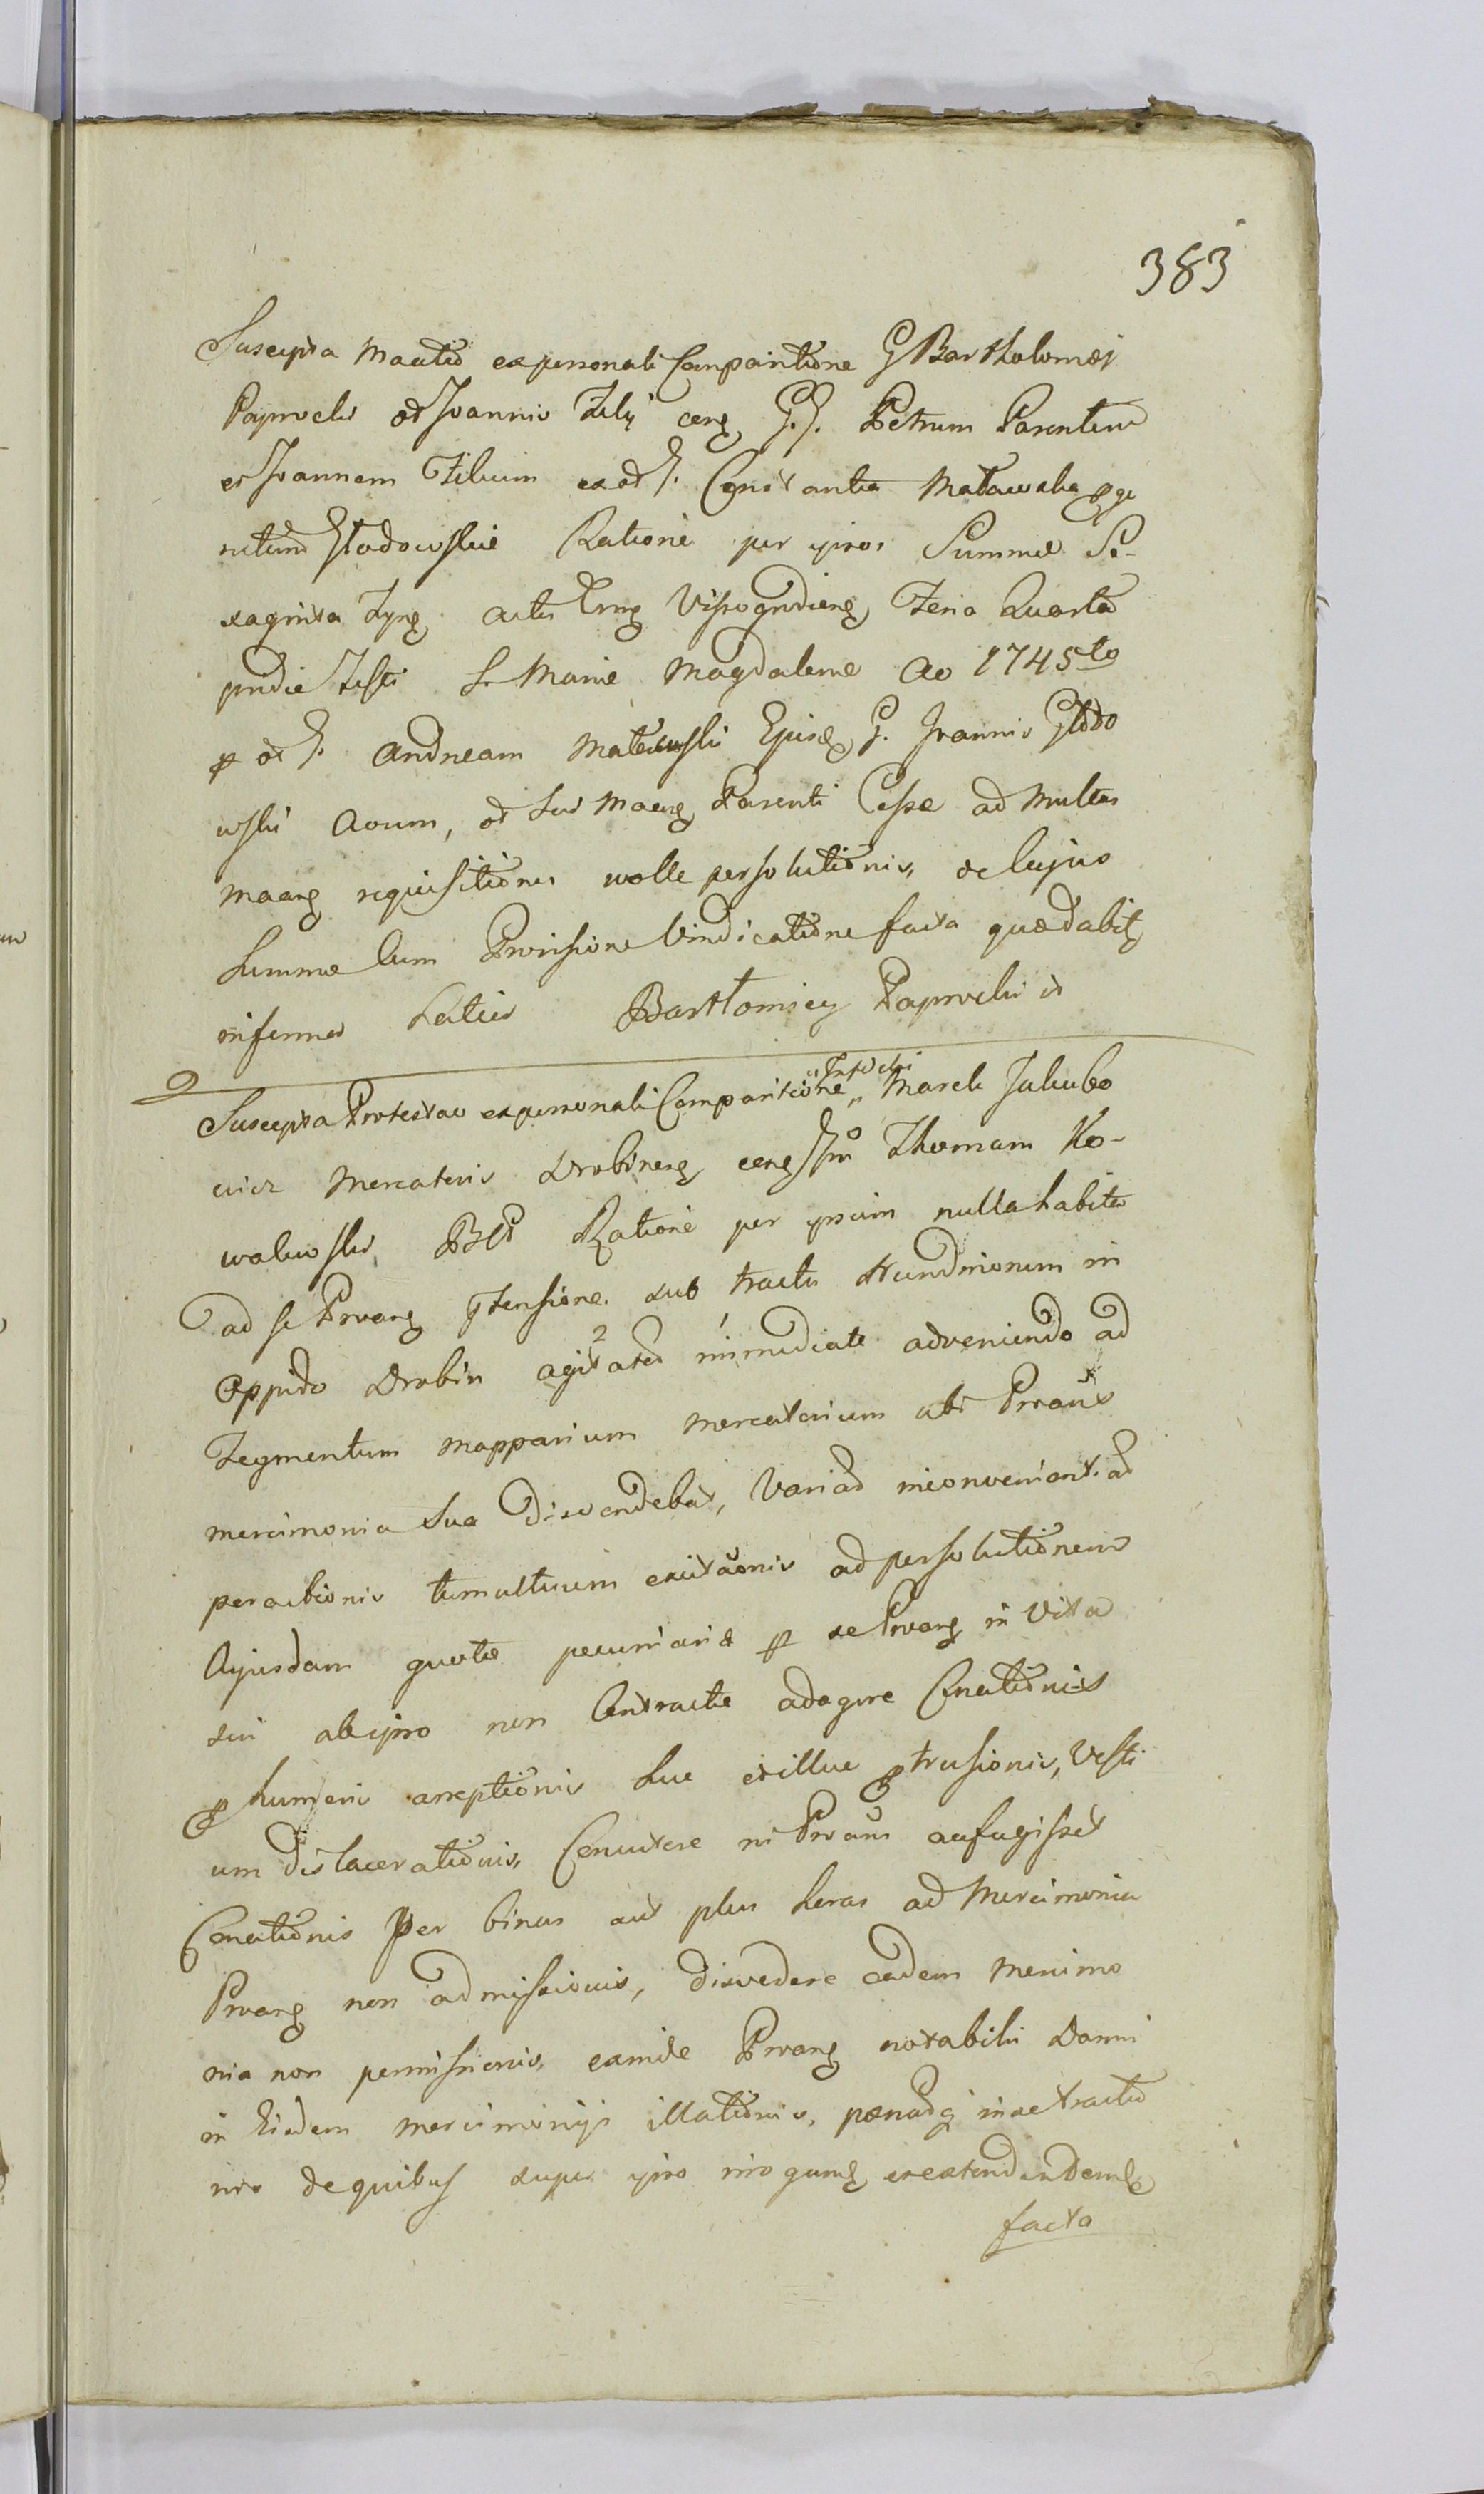 383
Suscepta Maatio ex personali Comparitione G Bartholomæi
Paprocki od Joannis Filij cerg G.G. Petrum Parentem
et Joannem Filium ex od G. Constantia Matawska pge
nitum Głodowskie Ratione per ipsos Summæ Se-
xaginta Tyng actis Crmg Vissogrodieng Feria Quarta
pridie Festi S. Mariæ Magdalenæ Ao 1745to
p od G. Andream Matawski Ejusq G. Joannis Głodo
wski Avum, od Sui Maang Parenti Cessæ ad multas
Maang requisitiones nolle persolutionis, de cujus
Summæ cum Provisione Vindicatione facta quæ dabit
inferius Latius Bartłomiey Paprocki is
Suscepta Protestao ex personali Comparitione „Infidelis„ Marek Jakubo
wicz Mercatoris Drobineng cerg Gsm Thomam Ko-
walewski, BCP Ratione per ipsum nulla habita
ad se Prvang ptensione. sub tractu Nundinorum in
Oppido Drobin agitatas immediate adveniendo ad
Tegmentum mapparium Mercatorium ubi Prvans
mercimonia sua disvendebat, Variad inconvenientiad
peractionis tumultuum excitaonis ad persolutionem
Cujusdam quotæ pecuniariæ p se Prvang in Vita
sui ab ipso non Contractæ adagere Conationis
p humeris arreptionis huc et illuc ptrusionis, Vesti
um dislacerationis, Concutere ni Prvans aufugisset
Conationis Per binas aut plus horas ad Mercimonia
Prvang non admissionis, disvedere eadem Merimo
nia non permissionis, eamide Prvang notabilis Damni
in Eisdem mercimonijs illationis, pænadq in se tractio
nis de quibus super ipso irrogandq et extendendemq
facta